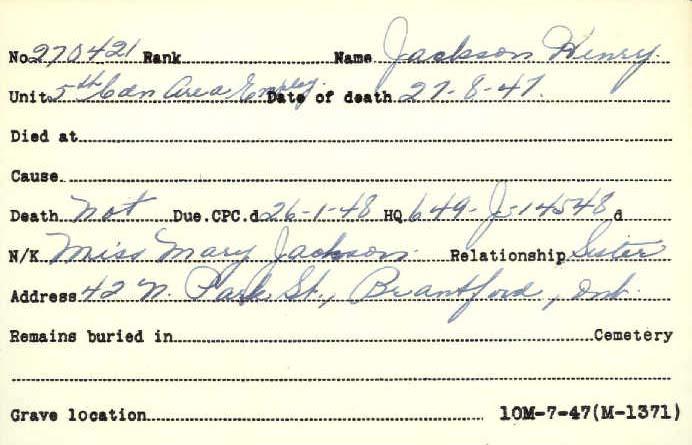 No. 270421 Rank Name Jackson Henry.
Unit 5th Cdn Area Employ. Date of death 27-8-47.
Died at
Cause
Death not Due. CPC. d 26-1-48 HQ 649-J-14548 d
N/K Miss Mary Jackson. Relationship Sister
Address 42 N. Park St., Brantford, Ont.
Remains buried in Cemetery
Grave location 10M-7-47(M-1371)